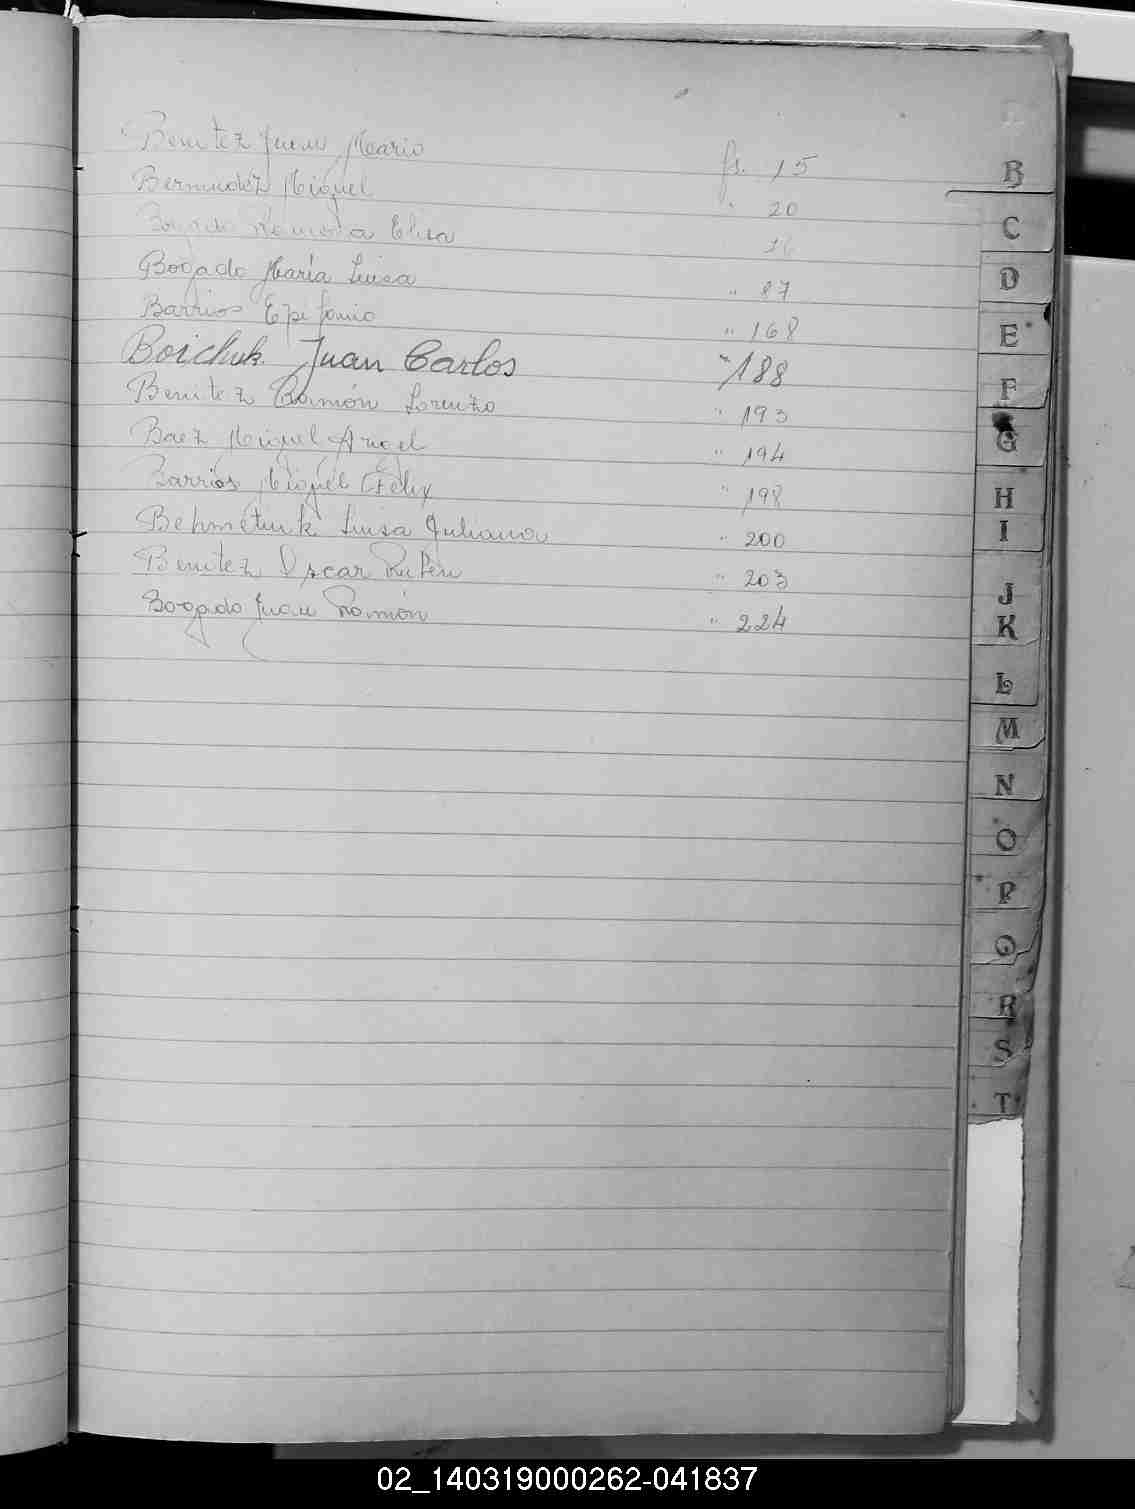 Benitez Juan Mario fs. 15
Bermudez Miguel " 20
Bogado Ramona Elisa 16
Bogado María Luisa " 87
Barrios Epifanio " 168
Boichuk Juan Carlos " 188
Benitez Ramón Lorenzo " 193
Baez Miguel Angel " 194
Barrios Miguel Félix " 198
Luisa Juliana " 200
Benitez Oscar Ruben " 203
Bogado Juan Ramón " 224
B
C
D
E
F
G
H
I
J
K
L
M
N
O
P
Q
R
S
T
02_140319000262-041837